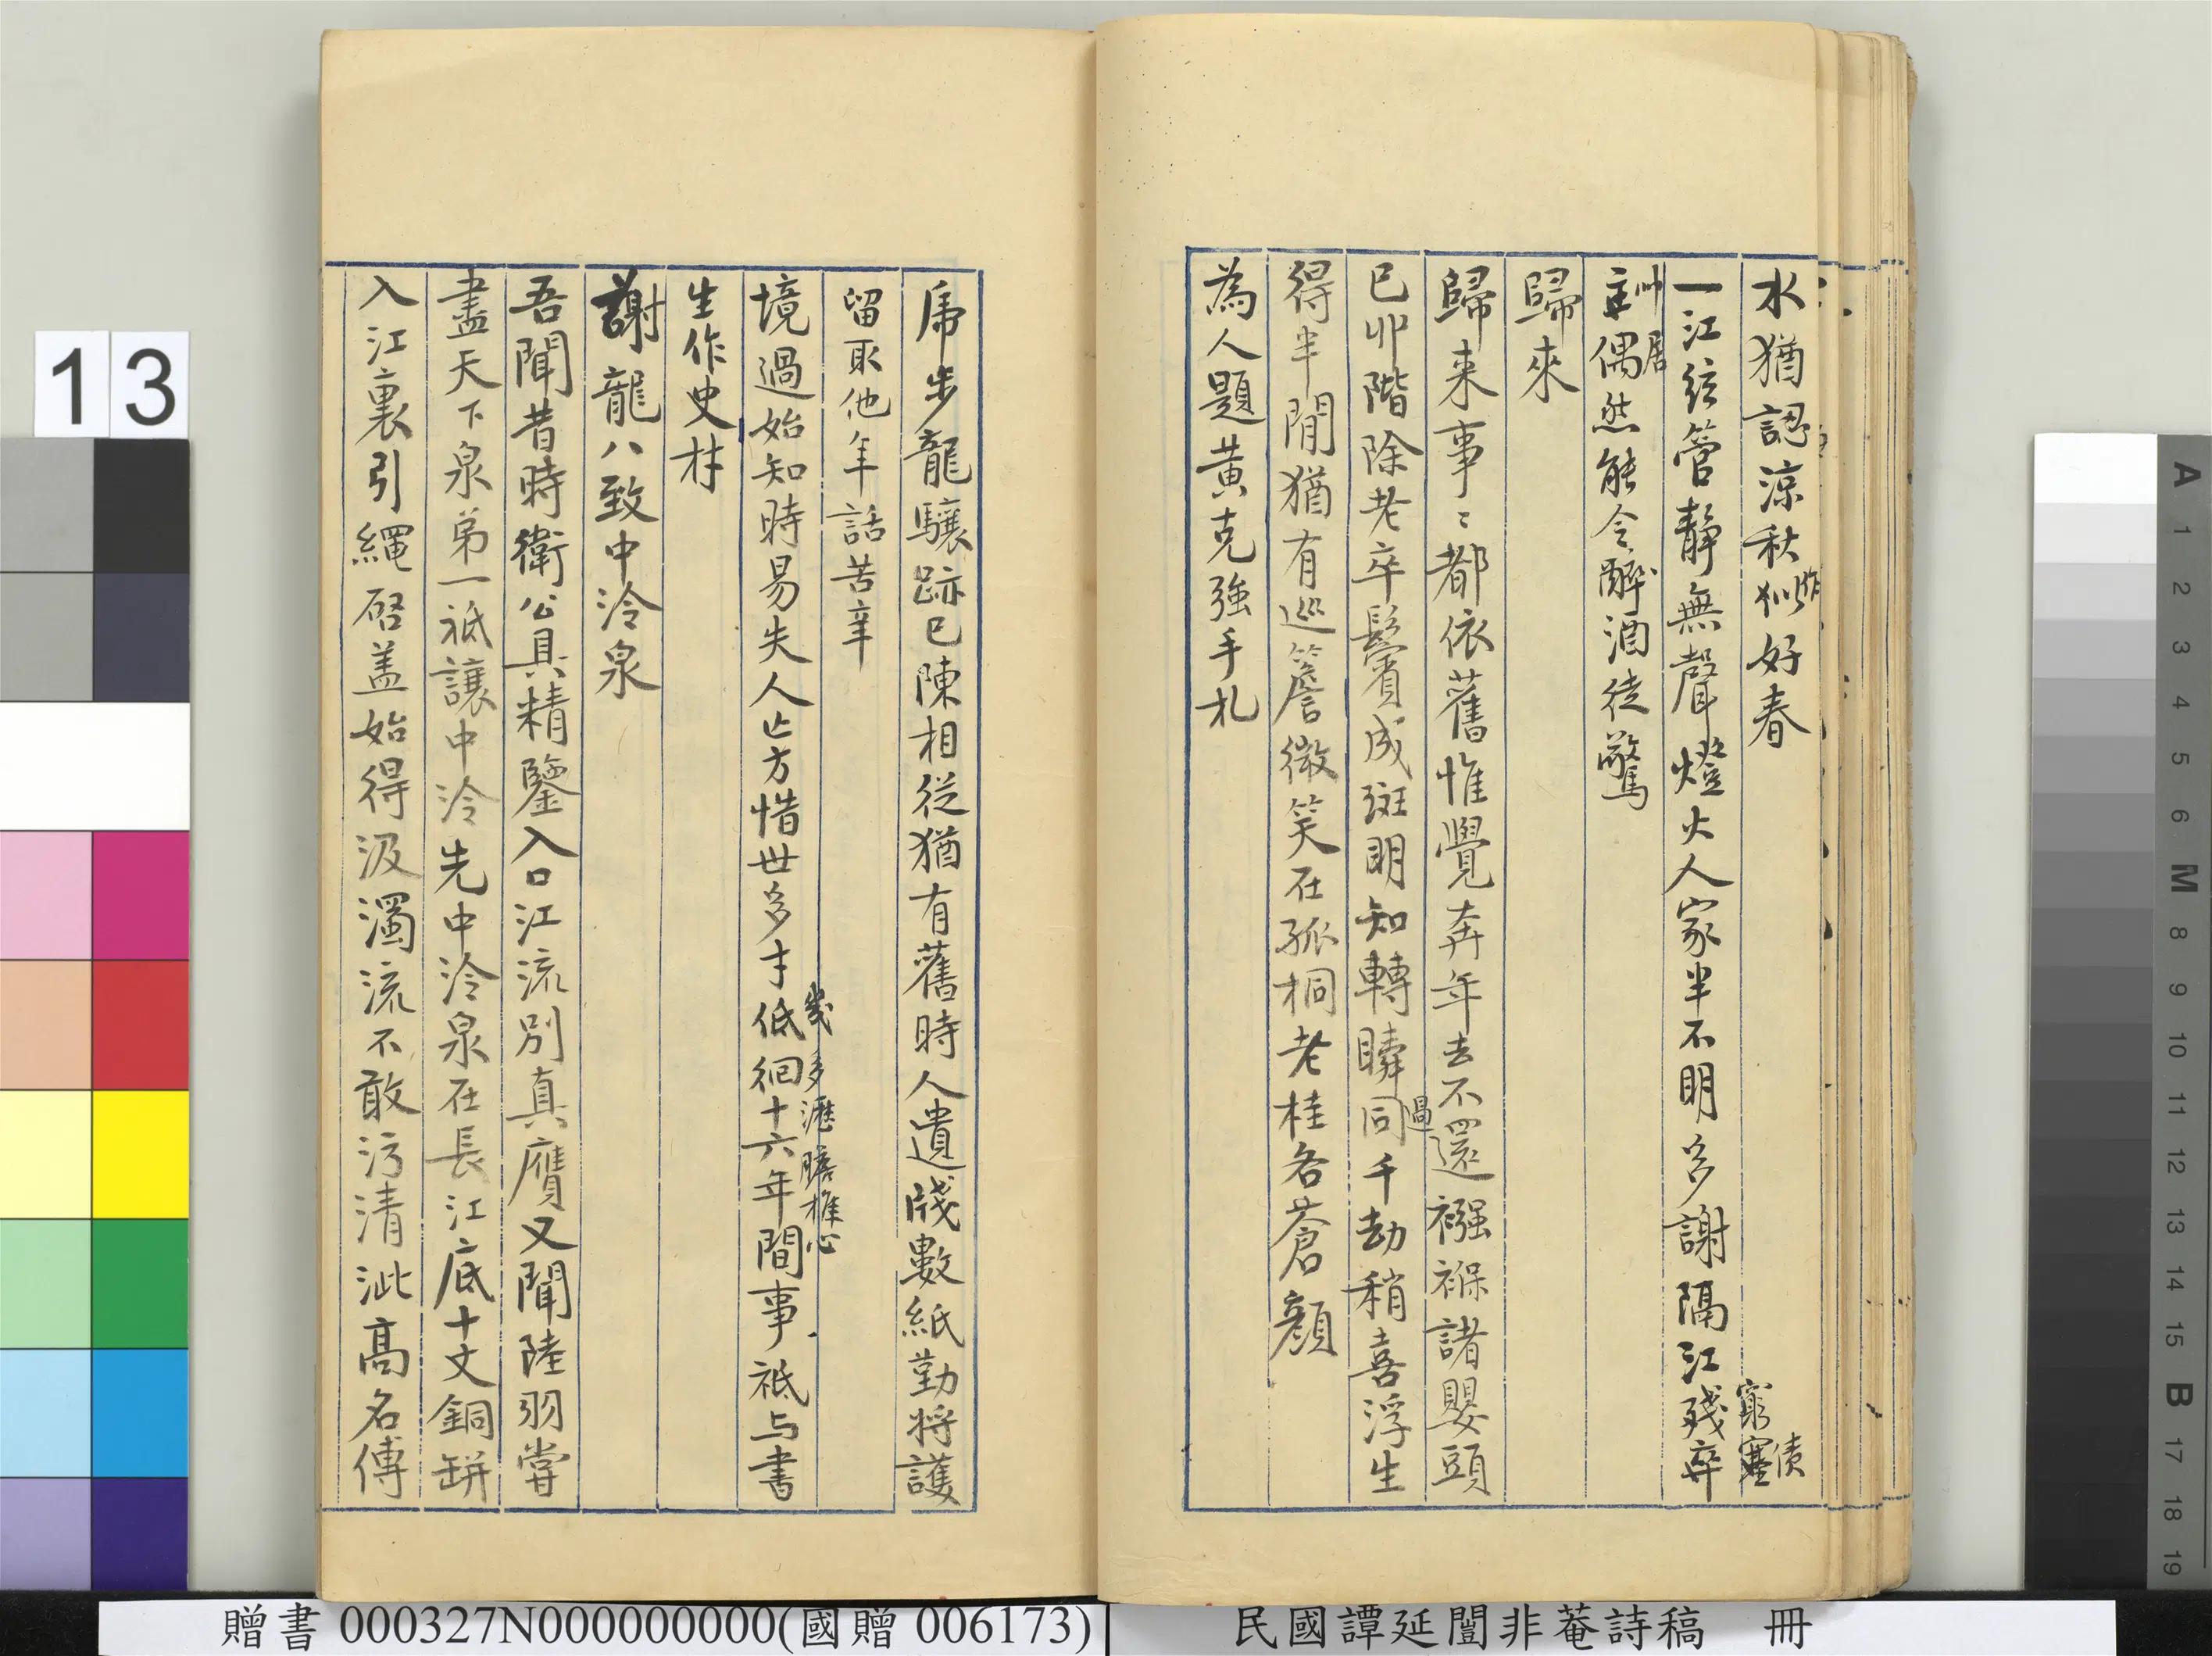 水猶認涼秋似好春
昨
一江弦管靜無聲燈火人家半不明多謝隔江殘卒
窮塞
債
主偶然能令醉酒徒驚
居
歸來
歸来事〻都依舊惟覺奔年去不還襁褓諸嬰頭
過
已丱階除老卒鬢成斑明知轉瞬同千劫稍喜浮生
得半閒猶有巡簷微笑在孤桐老桂各蒼顏
為人題黃克強手札
虎步龍驤跡已陳相從猶有舊時人遺牋數紙勤將護
留取他年話苦辛
幾多瀝膽推心
境過始知時易失人亡方惜世多才低徊十六年間事祇与書
生作史材
謝龍八致中泠泉
吾聞昔時衛公具精鑒入口江流別真贗又聞陸羽嘗
盡天下泉弟一祗讓中泠先中泠泉在長江底十丈銅缾
入江裏引繩啓盖始得汲濁流不敢污清泚高名傳
13
贈書 000327N000000000(國贈 006173)
民國譚延闓非菴詩稿 冊
A 1 2 3 4 5 6 M 8 9 10 11 12 13 14 15 B 17 18 19